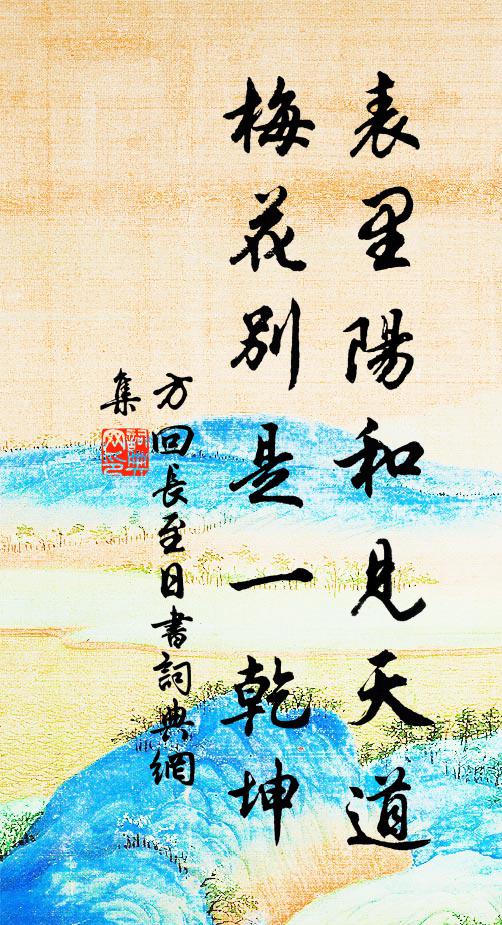 表里陽和見天道
梅花別是一乾坤
方回長至日書詞典網
集